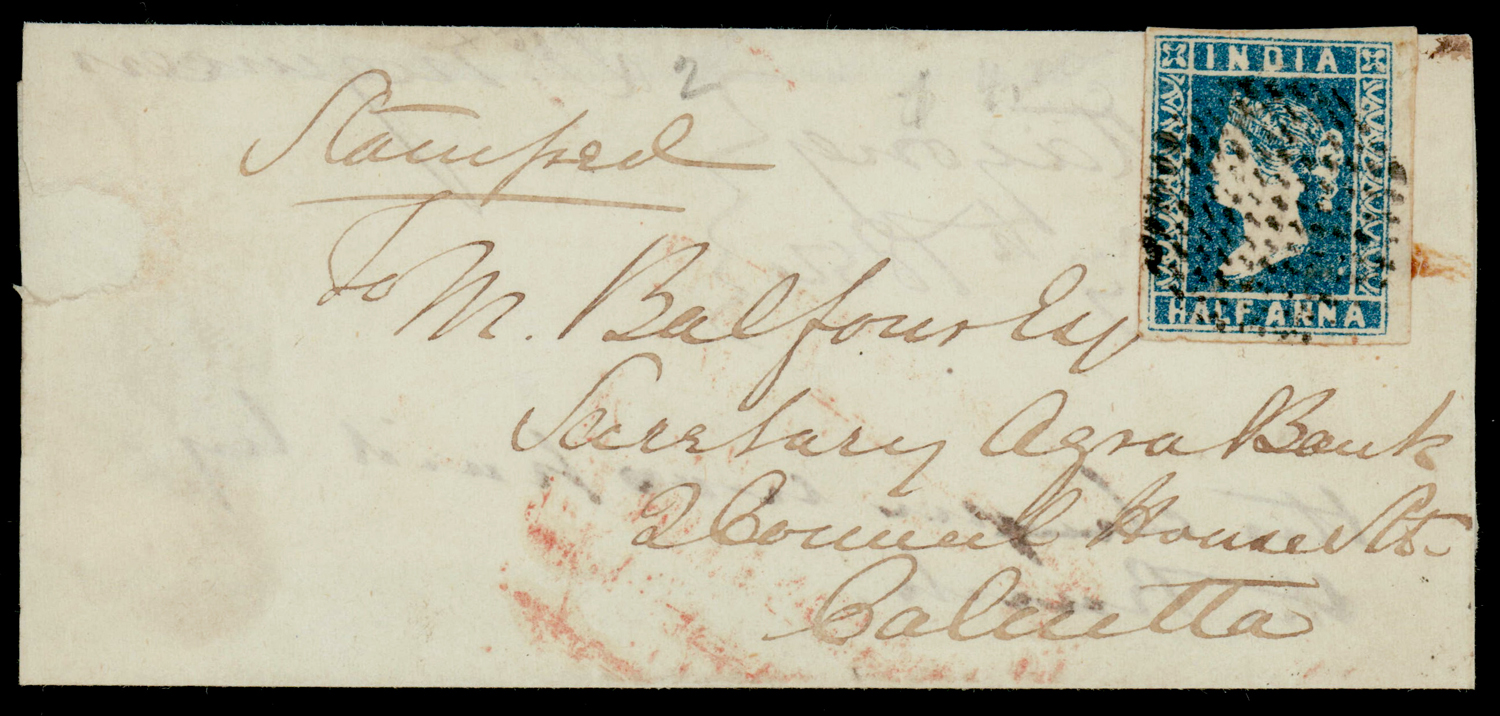 2
Stamped
INDIA
HALF ANNA
To
M. Balfour Esq
Secretary Agra Bank
2 Council House St.
Calcutta